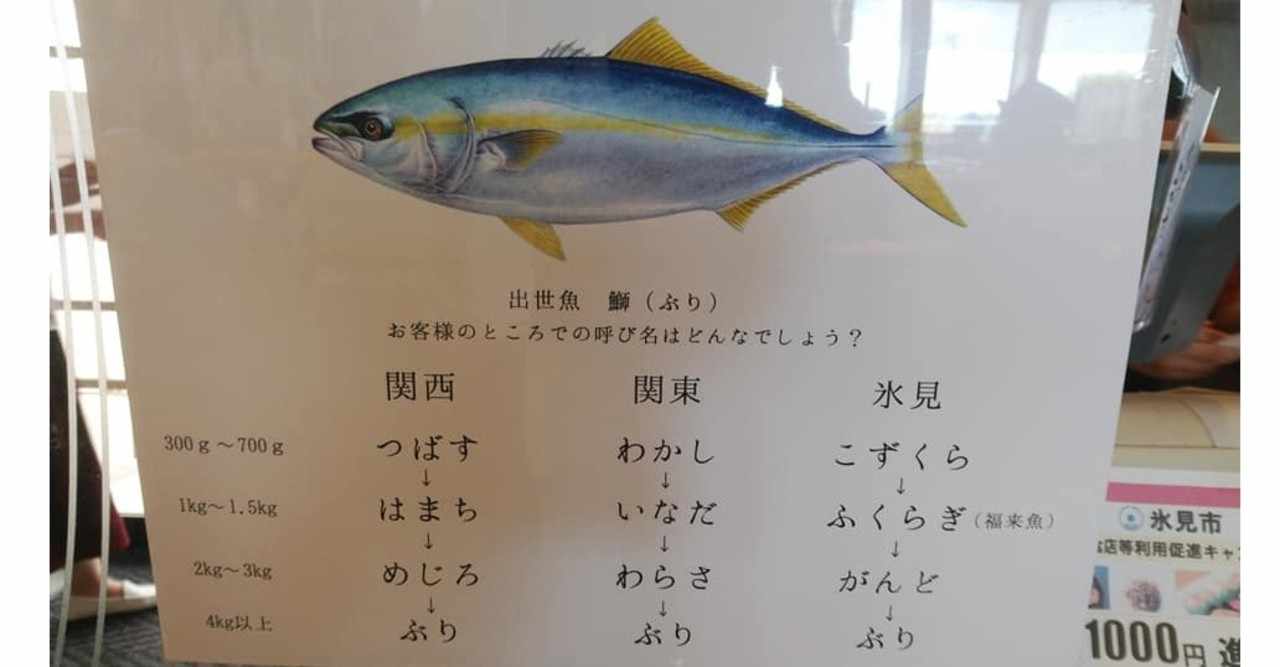 出世魚　鰤（ぶり）
お客様のところでの呼び名はどんなでしょう？
関西　関東　氷見
300ｇ～700ｇ　つばす　わかし　こずくら
↓　↓　↓
1kg～1.5kg　はまち　いなだ　ふくらぎ（福来魚）
↓　↓　↓
2kg～3kg　めじろ　わらさ　がんど
↓　↓　↓
4kg以上　ぶり　ぶり　ぶり
氷見市
店等利用促進キャン
1000円 進